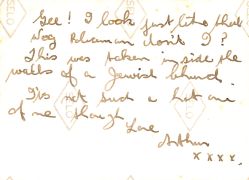 Gee! I look just like that
Wog don't I?
This was taken inside the
walls of a Jewish
It's not such a hot one
of me though
Love
Arthur
x x x x.
SELO